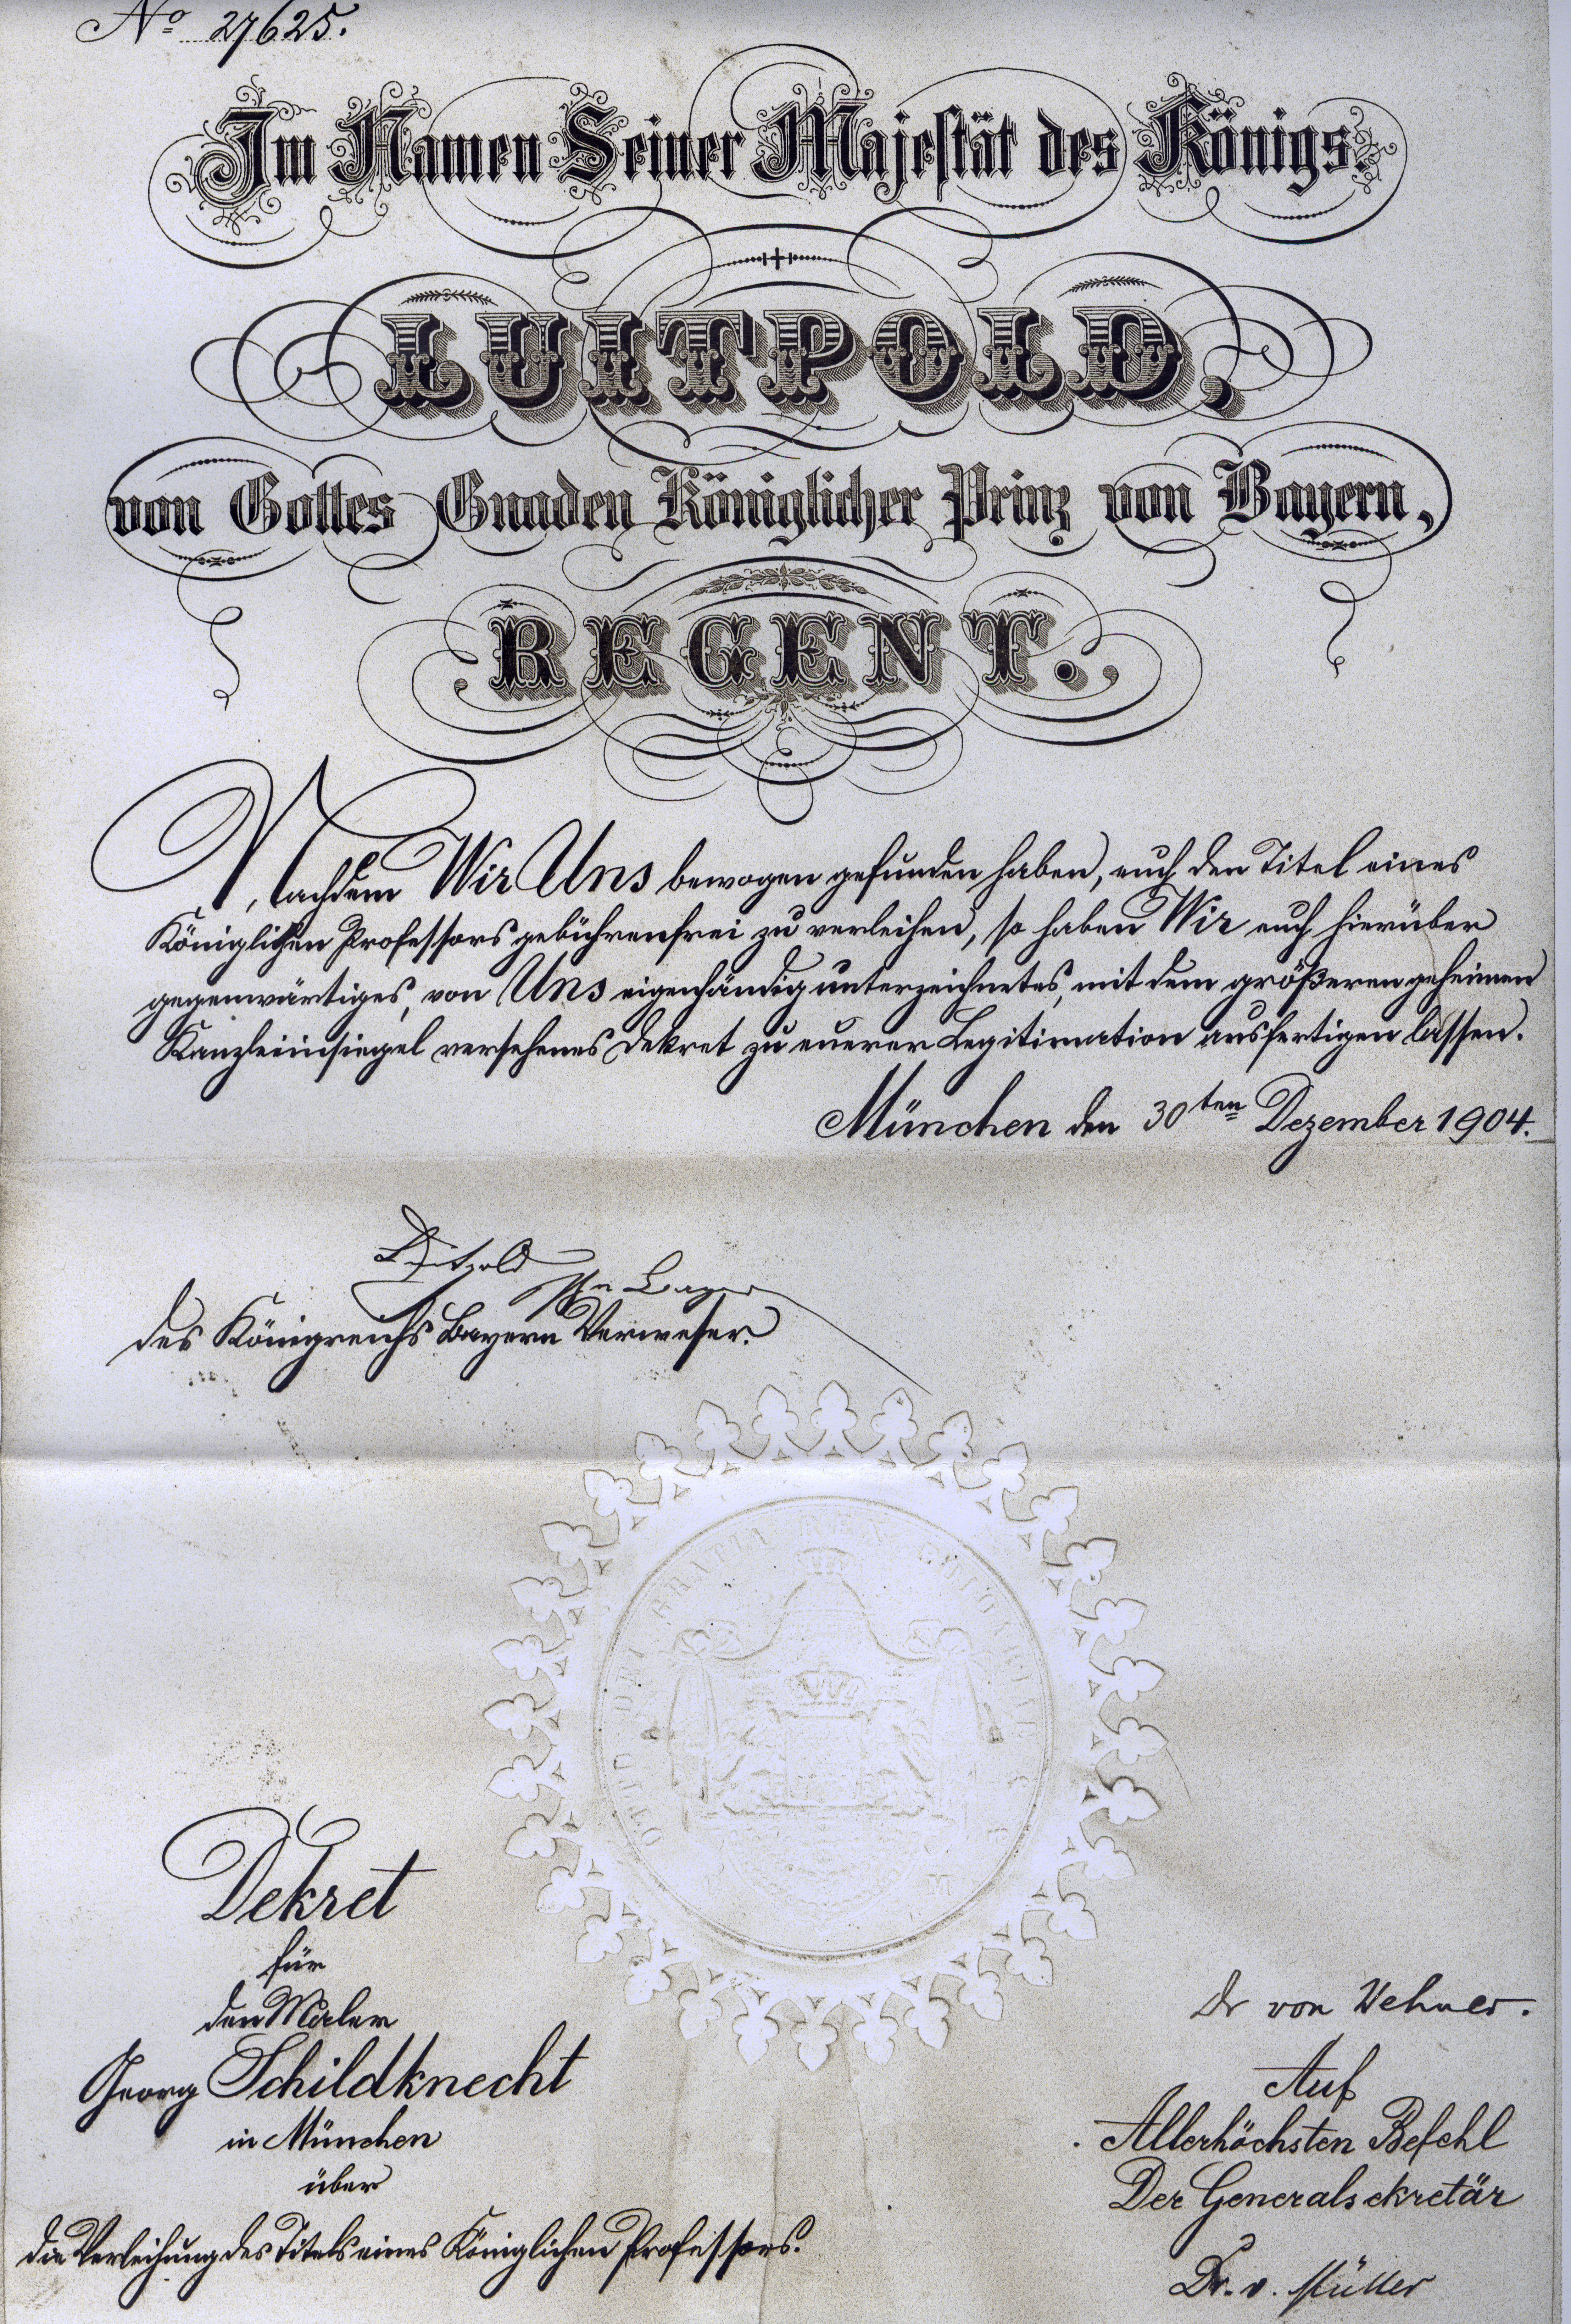 No 27625.
Im Namen Seiner Majestät des Königs.
LUITPOLD,
von Gottes Gnaden Königlicher Prinz von Bayern,
REGENT.
Nachdem Wir Uns bewogen gefunden haben, euch den Titel eines
Königlichen Professors gebührenfrei zu verleihen, so haben Wir euch hierüber
gegenwärtiges, von Uns eigenhändig unterzeichnetes, mit dem größeren geheimen
Kanzleiinsiegel versehenes Dekret zu euerer Legitimation ausfertigen lassen.
München den 30ten Dezember 1904.
Luitpold
Prz v Bayern
des Königreichs Bayern Verweser.
OTTO DEI GRATIA REX
Dekret
für
den Maler
Georg Schildknecht
in München
über
die Verleihung des Titels eines Königlichen Professors.
Dr von Wehner.
Auf
Allerhöchsten Befehl
Der Generalsekretär
Dr. v. Müller